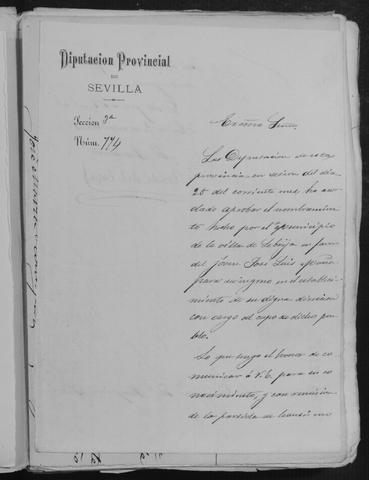 Diputacion Provincial
DE
SEVILLA
Seccion 3ª
Núm. 774
Excmo Señor
La Diputacion de esta
provincia en sesion del dia
25 del corriente mes ha acor
dado aprobar el nombramien
to hecho por el municipio
de la villa de Lebrija en favor
del joven José Luis
para su ingreso en el estableci
miento de su digna direccion
con cargo al cupo de dicho pue
blo.
Lo que tengo el honor de co
municar á V.E. para su co
nocimiento, y con remision
de la partida de bautismo